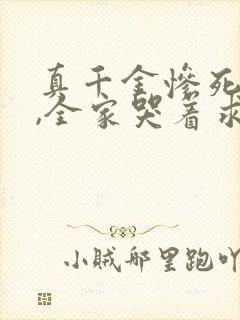 真千金惨死
,全家哭着求
小贼船里跑吖